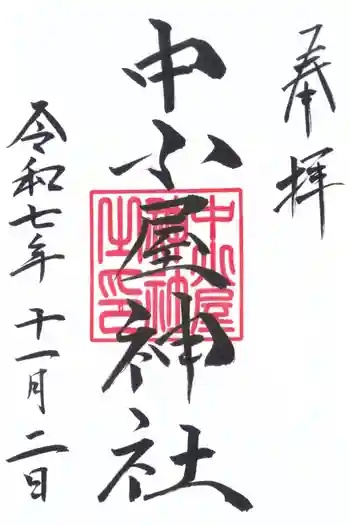 奉拝
中小屋神社
中小屋
神社
之印
令和七年 十一月二日